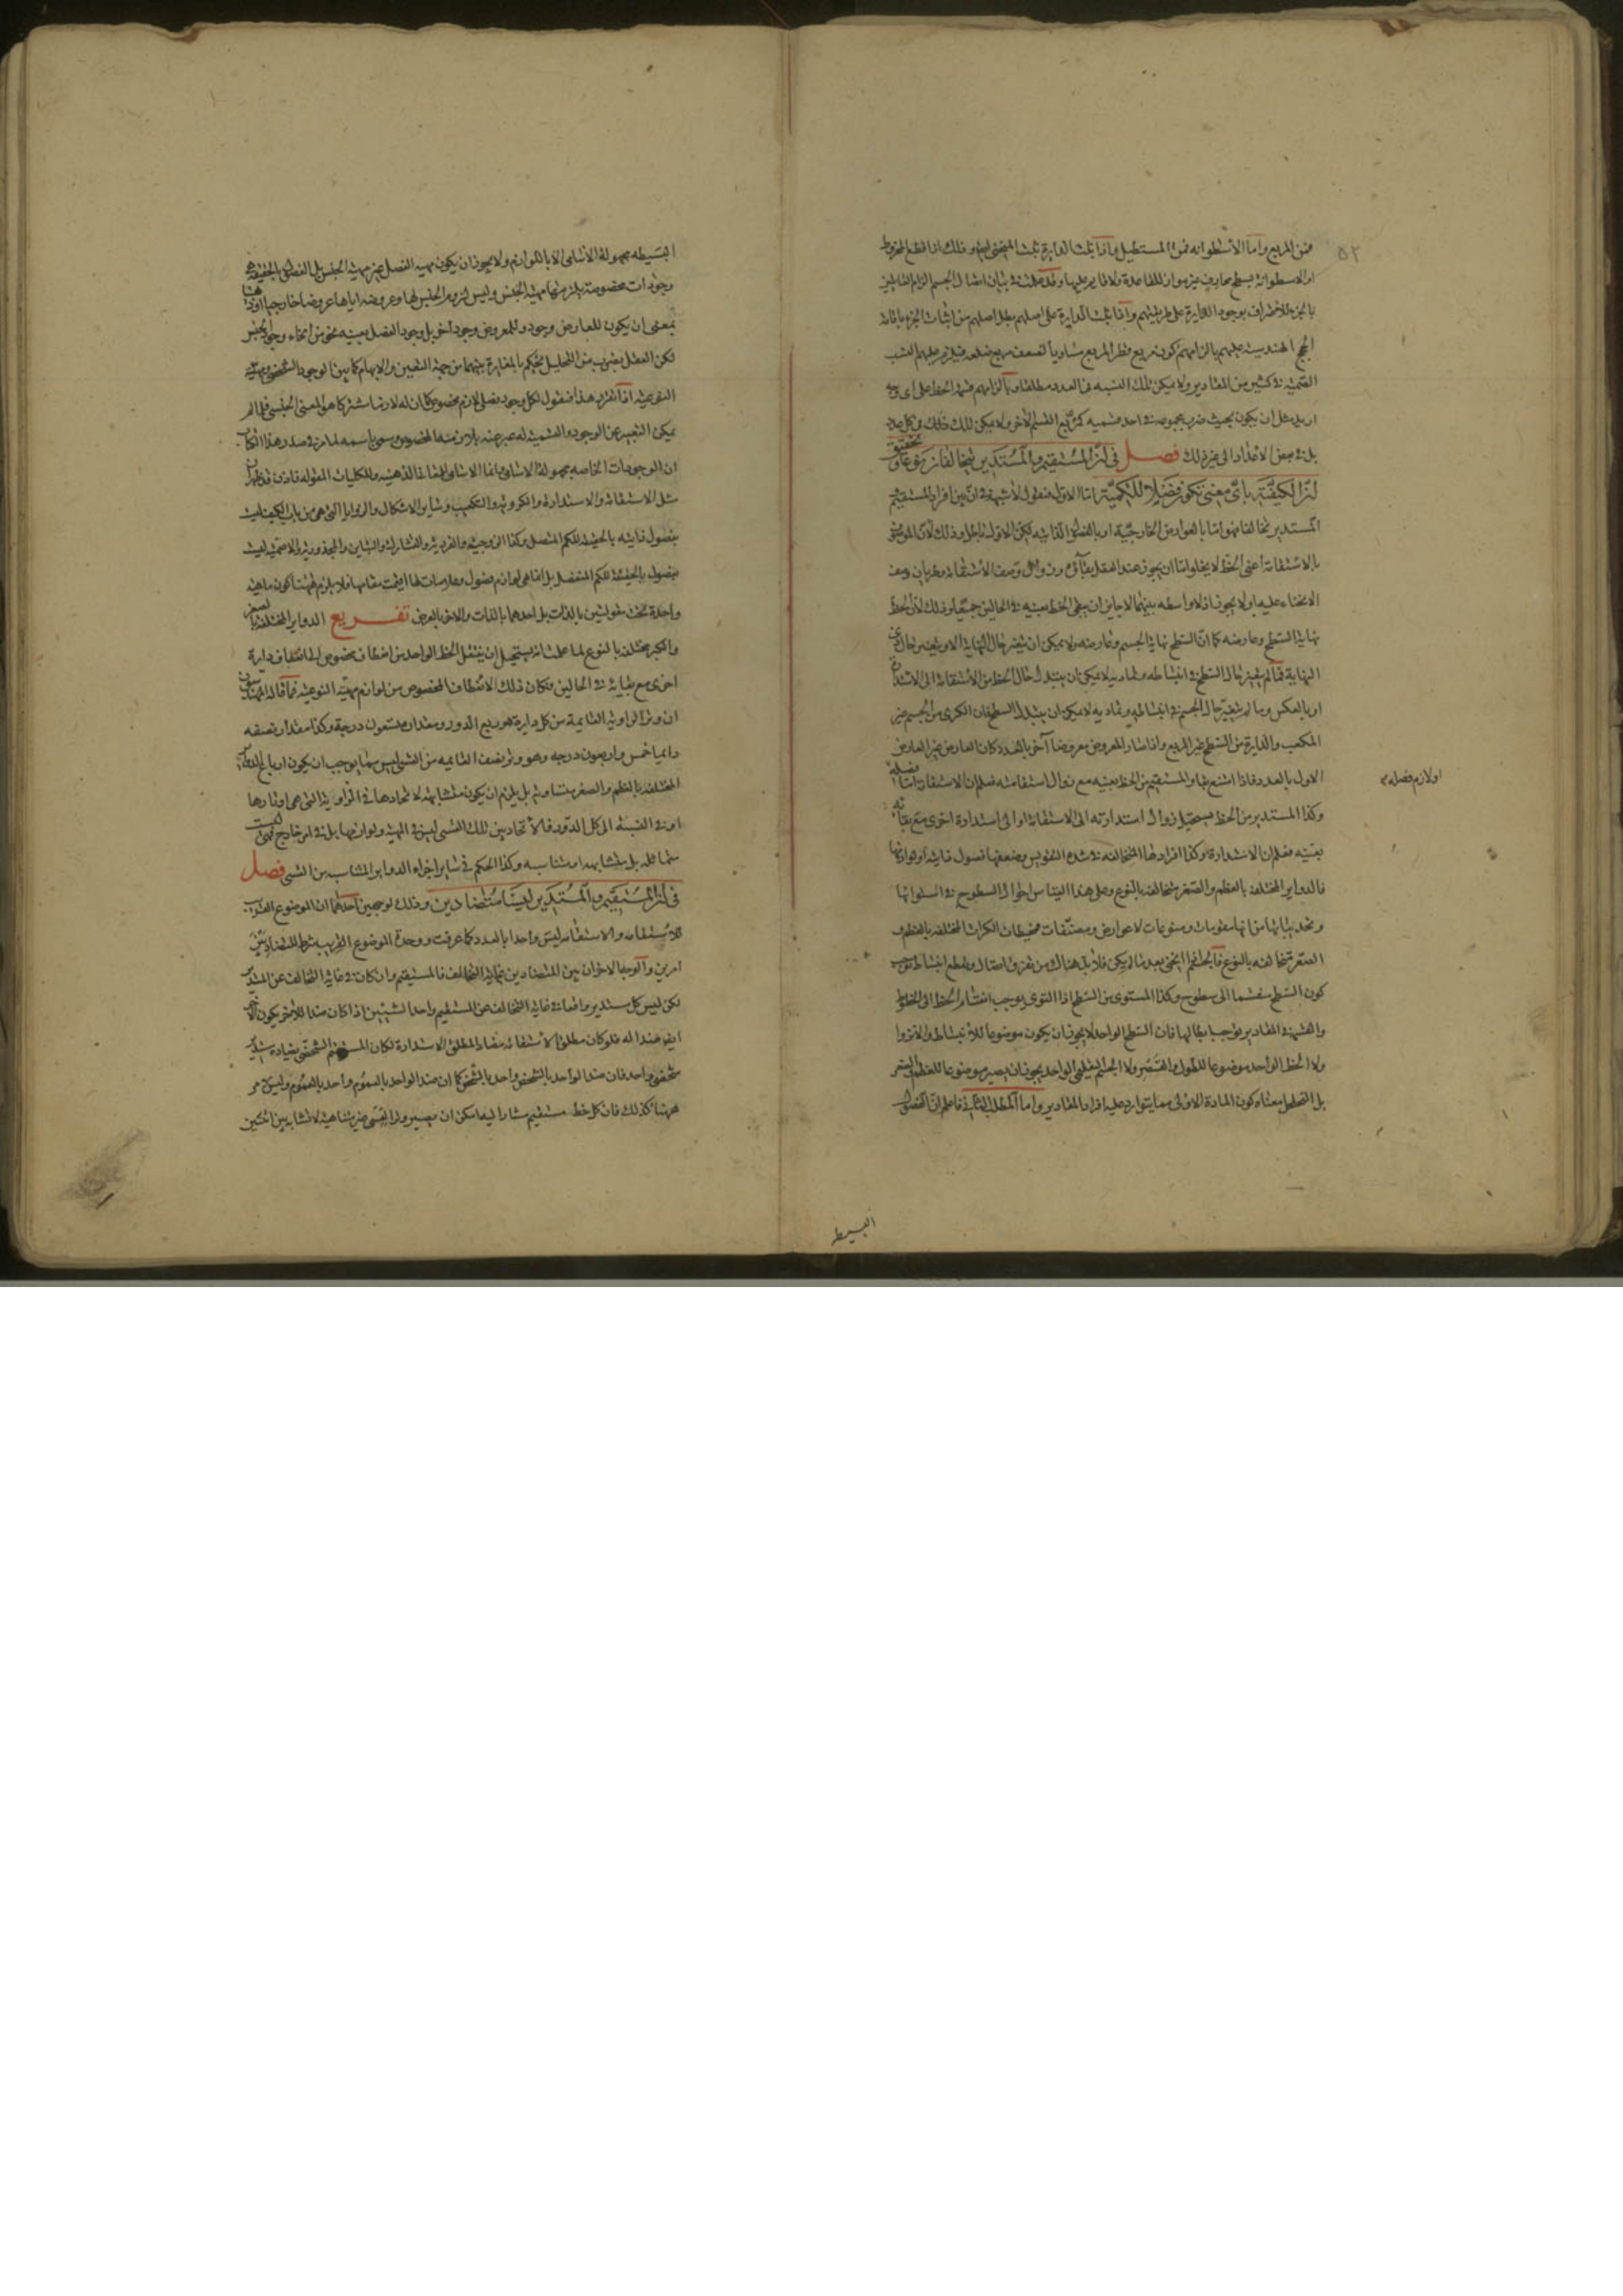 ٥٢
فمن المربع واما الأسطوانة فمن المستطيل واذا ثبت الدايرة ثبت المنحنى ايضا وذلك اذا قطع المخروط
او الاسطوانة بسطح محارف غير مواز للقاعدة ولا قايم عليها وقد علمت في بيان اتصال الجسم الزام القايلين
بالجزء للاعتراف بوجود الدايرة على طريقتهم واما اثبات الدايرة على اصلهم بطل اصلهم من اثبات الجزء باقامة
الحجج الهندسية عليهم بالزامهم كون مربع قطر المربع مساويا لضعف مربع ضلعه فيلزم عليهم النسب
الصمية في كثير من المقادير ولا يمكن تلك النسبة في العدد مطلقا وبالزامهم قسمة الخط على اى وجه
اريد مثل ان يكون بحيث ضرب مجموعه في احد قسميه كمربع القسم الآخر ولا يمكن ذلك في كل عدد
بل في بعض الاعداد الى غير ذلك فصل في ان المستقيم والمستدير متخالفان نوعا وتحقيق
ان الكيفية باى معنى تكون فصلا للكمية اما الاول فنقول لا شبهة في ان بين افراد المستقيم
المستدير تخالفا فهو اما بالعوارض الخارجية او بالفصول الذاتية لكن الاول باطل وذلك لان الموصوف
بالاستقامة اعنى الخط لا يخلو اما ان يجوز عند العقل بقاؤه وزوال وصف الاستقامة وطريان وصف
الانحناء عليه او لا يجوز اذ لا واسطه بينهما لا جايز ان يبقى الخط بعينه في الحالين جميعا وذلك لان الخط
نهاية السطح وعارضه كما ان السطح نهاية الجسم وعارضه ولا يمكن ان يتغير حال النهاية الا ويتغير حال ذى
النهاية فما لم يتغير حال السطح في انبساطه وتماديه لا يمكن ان يتبدل حال الخط من الاستقامة الى الاستدارة
او بالعكس وما لم يتغير حال الجسم في انبساطه وتماديه لا يمكن ان يتبدل السطح فان الكرى من الجسم غير
المكعب والدايرة من السطح غير المربع واذا صار المعروض معروضا آخر بالعدد كان العارض غير العارض
الاول بالعدد فاذا امتنع بقاء المستقيم من الخط بعينه مع زوال استقامته فعلم ان الاستقامة اما فصله
او لازم فصله
وكذا المستدير من الخط يستحيل زوال استدارته الى الاستقامة او الى استدارة اخرى مع بقائه
بعينه فعلم ان الاستدارة وكذا افرادها المتخالفة في شدة التقويس وضعفها فصول ذاتية او لوازمها
فالدواير المختلفة بالعظم والصغر متخالفة بالنوع وعلى هذا القياس احوال السطوح في استوائها
وتحديباتها من انها مقومات ومنوعات لا عوارض ومصنفات فمحيطات الكرات المختلفة بالعظم و
الصغر متخالفة بالنوع فالجسم اذا انحنى بعد ما لم يكن فلا بد هناك من تفرق اتصال وقطع انبساط يوجب
كون السطح منقسما الى سطوح وكذا المستوى من السطح اذا التوى يوجب انقسام الخط الى خطوط
والقسمة في المقادير توجب ابطالها فان السطح الواحد لا يجوز ان يكون موضوعا للانبساط والانزواء
ولا الخط الواحد موضوعا للطول والقصر ولا الجسم التعليمى الواحد يجوز ان يصير موضوعا للعظم والصغر
بل التخلخل معناه كون المادة الاولى مما يتوارد عليه افراد المقادير واما المطلب الثانى فاعلم ان الفصول
البسيطه
البسيطه مجهولة الأسامى الا باللوازم ولا يجوز ان يكون مهية الفصل غير مهية الجنس بل الفصول بالحقيقة
وجودات مخصوصة يلزمها مهية الجنس وليس لزوم الجنس لها وعروضه اياها عروضا خارجيا او ذهنيا
بمعنى ان يكون للعارض وجود وللمعروض وجود آخر بل وجود الفصل بعينه نحو من انحاء وجود الجنس
لكن العقل بضرب من التحليل يحكم بالمغايرة بينهما من جهة التعين والابهام كما بين الوجود الشخصى ومهيته
النوعية اذا تقرر هذا فنقول لكل وجود فصلى لازم مخصوص كما ان له لازما مشتركا هو المعنى الجنسى فلما لم
يمكن التعبير عن الوجود والتسمية له عبر عنه بلازمه المخصوص وسمى باسمه لما مر في صدر هذا الكتاب
ان الوجودات الخاصه مجهولة الاسامى وانما الاسامى للمفاهيم الذهنية وللكليات المقولة فاذن قد ظهر ان
مثل الاستقامة والاستدارة والكروية والتكعيب وساير الاشكال والزوايا التى هى من باب الكيف ليست
بفصول ذاتية بالحقيقة للكم المتصل وكذا الزوجية والفردية والتشارك والتباين والمجذورية والاصمية ليست
بفصول بالحقيقة للكم المنفصل بل انما هى لوازم فصول وعلامات لها اقيمت مقامها فلا يلزم ههنا كون ماهية
واحدة تحت مقولتين بالذات بل احدهما بالذات والاخر بالعرض تفريع الدواير المختلفة بالصغر
والكبر مختلفة بالنوع لما علمت انه يستحيل ان ينتقل الخط الواحد من انعطاف مخصوص الى انعطاف دايرة
اخرى مع بقائه في الحالين فكان ذلك الانعطاف المخصوص من لوازم مهيته النوعية فما قاله المهندسون
ان وتر الزاوية القايمة من كل دايرة هو ربع الدور ومقداره تسعون درجة وكذا مقدار نصفه
دايما خمس واربعون درجه وهو وتر نصف القايمه من القسى ليس مما يوجب ان يكون ارباع الدواير
المختلفة بالعظم والصغر متساوية بل يلزم ان يكون متشابهة لاتحادها في الزاوية التى هى اوتارها
او في النسبة الى كل الدور فالاتحاد بين تلك القسى ليس في المهية ولوازمها بل في امر خارج فهى ليست
متماثلة بل متشابهه او متناسبه وكذا الحكم في ساير اجزاء الدواير المتناسبه من القسى فصل
في ان المستقيم والمستدير ليسا متضادين وذلك لوجهين احدهما ان الموضوع القريب
للاستقامه والاستقامه ليس واحدا بالعدد كما عرفت ووحدة الموضوع القريب شرط للمتضادين
امرين والوجه الاخر ان بين المتضادين غاية التخالف فالمستقيم وان كان في غاية التخالف عن المستدير
لكن ليس كل مستدير واقعا في غاية التخالف عن المستقيم واحدا لشيئين اذا كان ضدا للآخر يكون الآخر
ايضا ضدا له فلو كان مطلق الاستقامه مضادا لمطلق الاستدارة لكان المستقيم الشخصى يضاده مستدير
شخصى واحد فان ضد الواحد بالشخص واحد بالشخص كما ان ضد الواحد بالعموم واحد بالعموم وليس الامر
ههنا كذلك فان كل خط مستقيم مشار اليه امكن ان يصير وترا لقسى غير متناهية لا تشابه بين اثنين